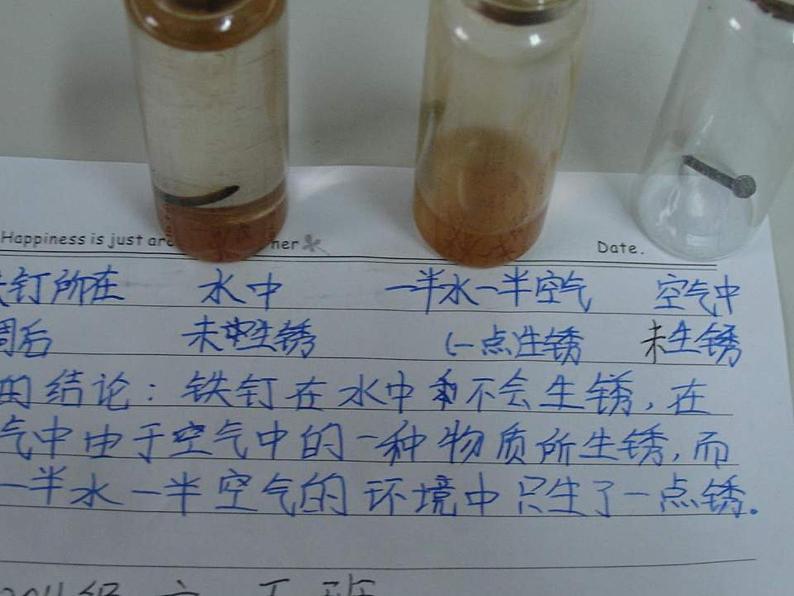 Happiness is just aro her Date.
钉所在 水中 一半水一半空气 空气中
周后 未生锈 (一点)生锈 未生锈
的结论：铁钉在水中不会生锈，在
气中由于空气中的一种物质所生锈，而
一半水一半空气的环境中只生了一点锈.